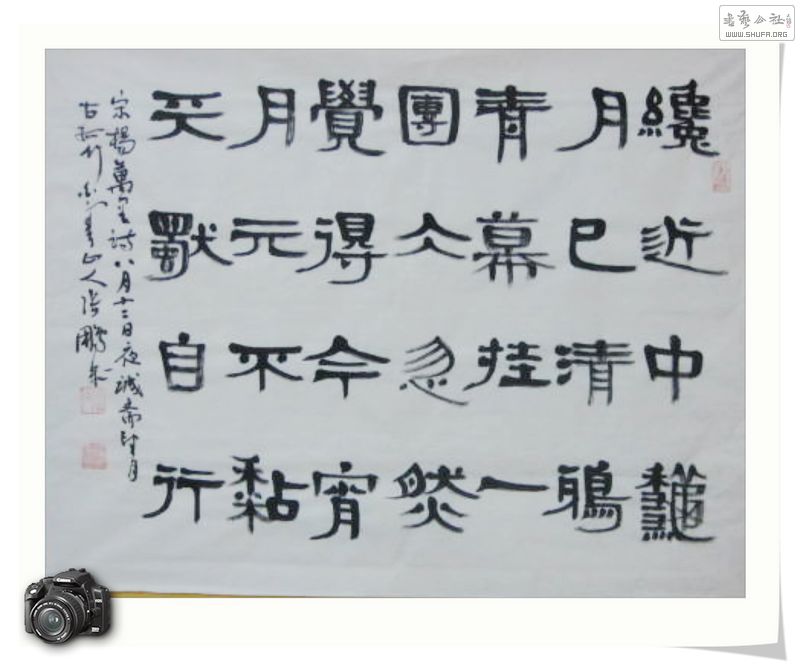 書藝公社
WWW.SHUFA.ORG
纔近中龝
月已清鴉
青幕挂一
團仌忽然
覺得今宵
月元不黏
天獨自行
宋楊萬里詩八月十二日夜誠齋望月
古孤竹山人張鵬
Canon